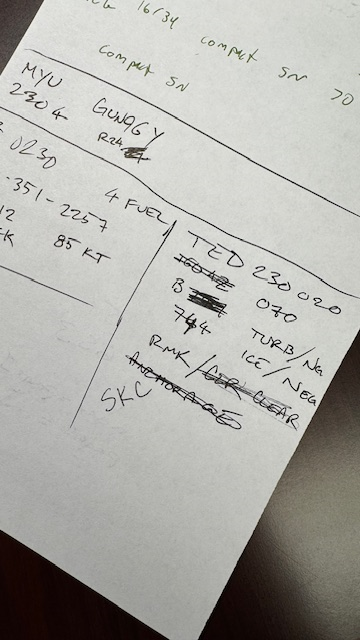 16/34 compact SN 70
compact SN
MYU GUNGGY
2304 R24
0230
-351-2257 4 FUEL
12 85 KT
TED 230 020
B 070
744 TURB/NG
ICE/NEG
RMK/CLR CLEAR
ANCHORAGE
SKC